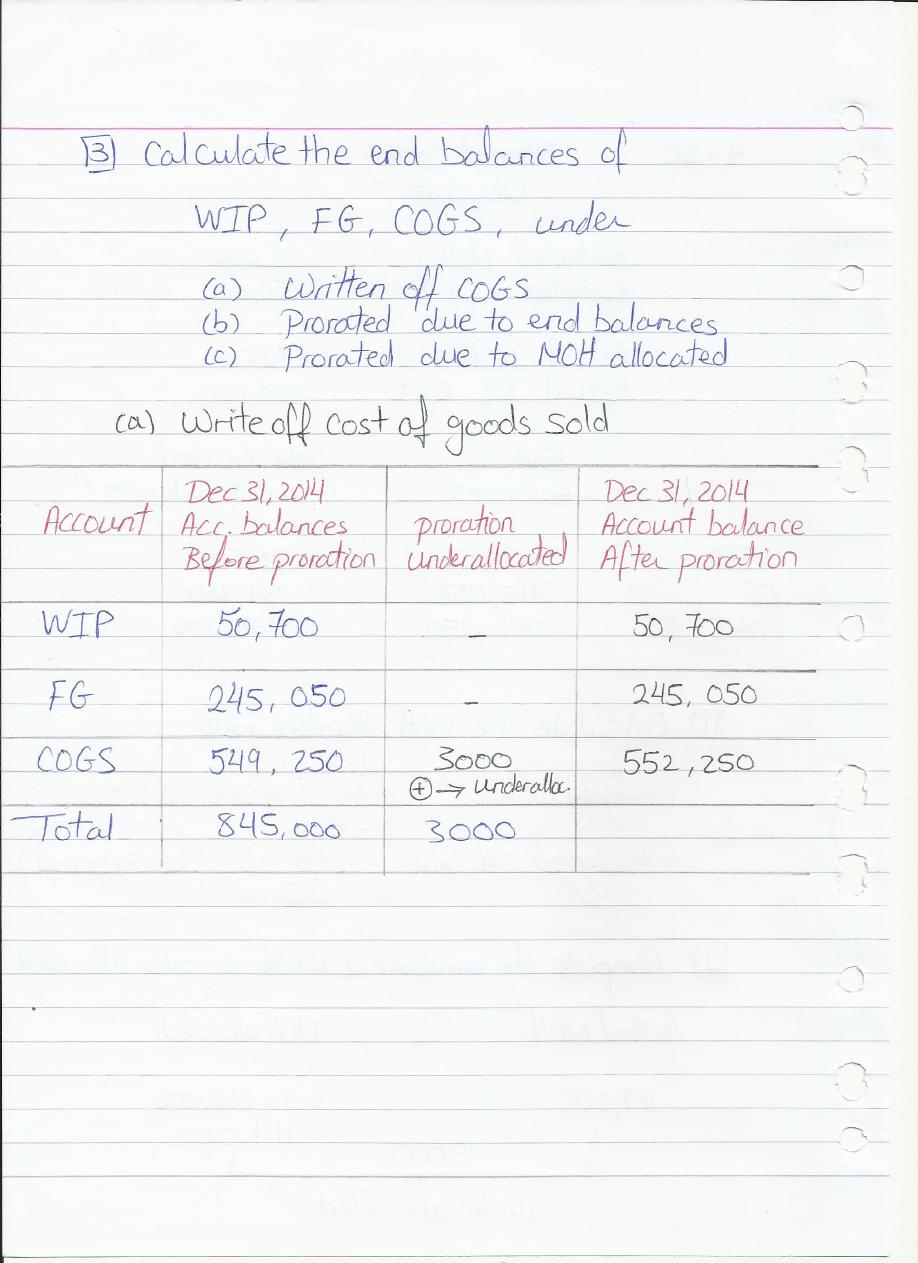 3 Calculate the end balances of
WIP, FG, COGS, under
(a) Written off COGS
(b) Prorated due to end balances
(c) Prorated due to MOH allocated
(a) Write off cost of goods sold
Account Dec 31, 2014 Acc. balances Before proration proration Underallocated Dec 31, 2014 Account balance After proration
WIP 50,700 – 50,700
FG 245,050 – 245,050
COGS 549,250 3000 552,250
+ → Underalloc.
Total 845,000 3000